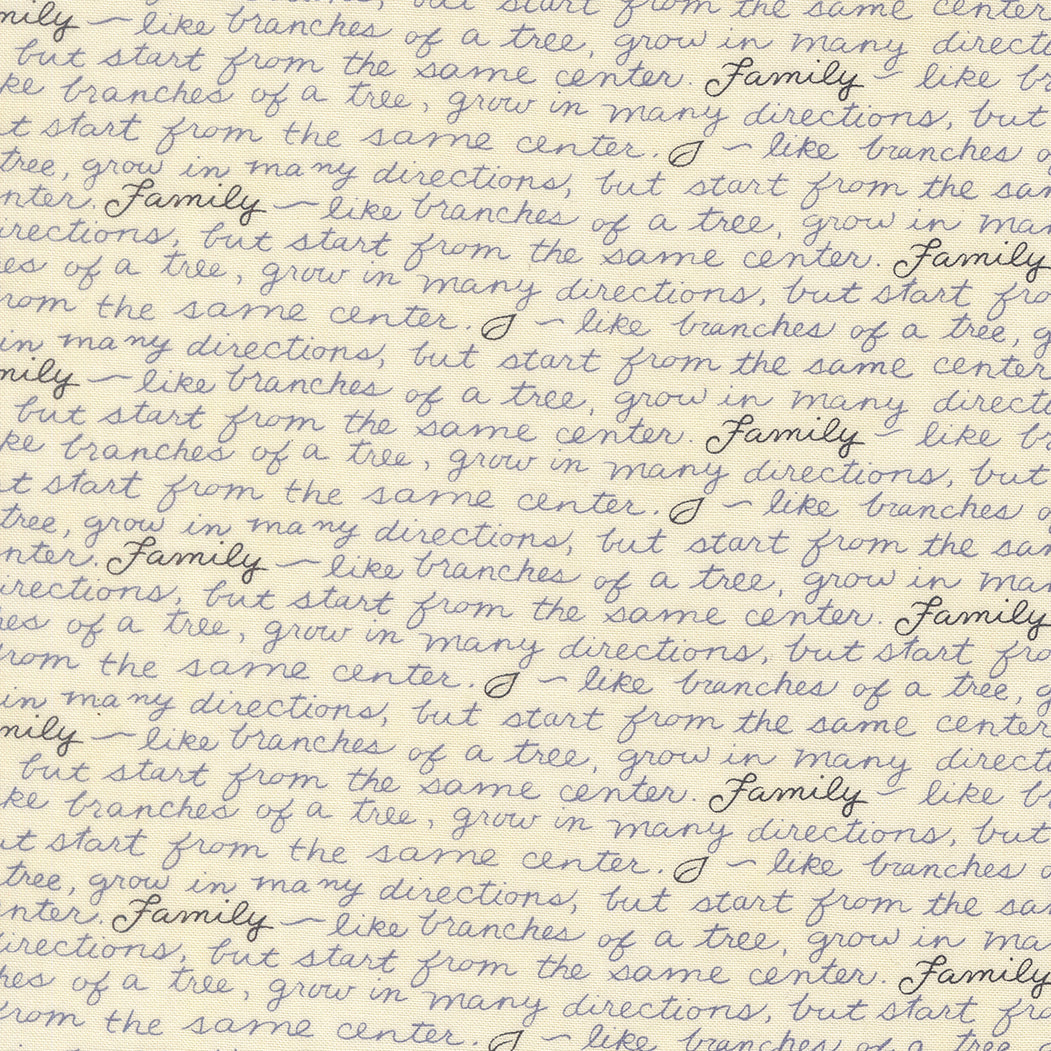 but start from the same center
mily ~ like branches of a tree, grow in many directi
but start from the same center. Family ~ like br
ke branches of a tree, grow in many directions, but
t start from the same center. ~ like branches o
tree, grow in many directions, but start from the sam
nter. Family ~ like branches of a tree, grow in man
irections, but start from the same center. Family
es of a tree, grow in many directions, but start fro
rom the same center. ~ like branches of a tree, g
in many directions, but start from the same center
mily ~ like branches of a tree, grow in many directi
but start from the same center. Family ~ like br
ke branches of a tree, grow in many directions, but
t start from the same center. ~ like branches o
tree, grow in many directions, but start from the sam
nter. Family ~ like branches of a tree, grow in man
irections, but start from the same center. Family
hes of a tree, grow in many directions, but start fro
from the same center. ~ like branches of a tree, g
in many directions, but start from the same center
mily ~ like branches of a tree, grow in many directi
but start from the same center. Family ~ like br
ke branches of a tree, grow in many directions, but
ut start from the same center. ~ like branches o
tree, grow in many directions, but start from the sa
nter. Family ~ like branches of a tree, grow in ma
directions, but start from the same center. Family
hes of a tree, grow in many directions, but start fro
from the same center. ~ like branches of a tree